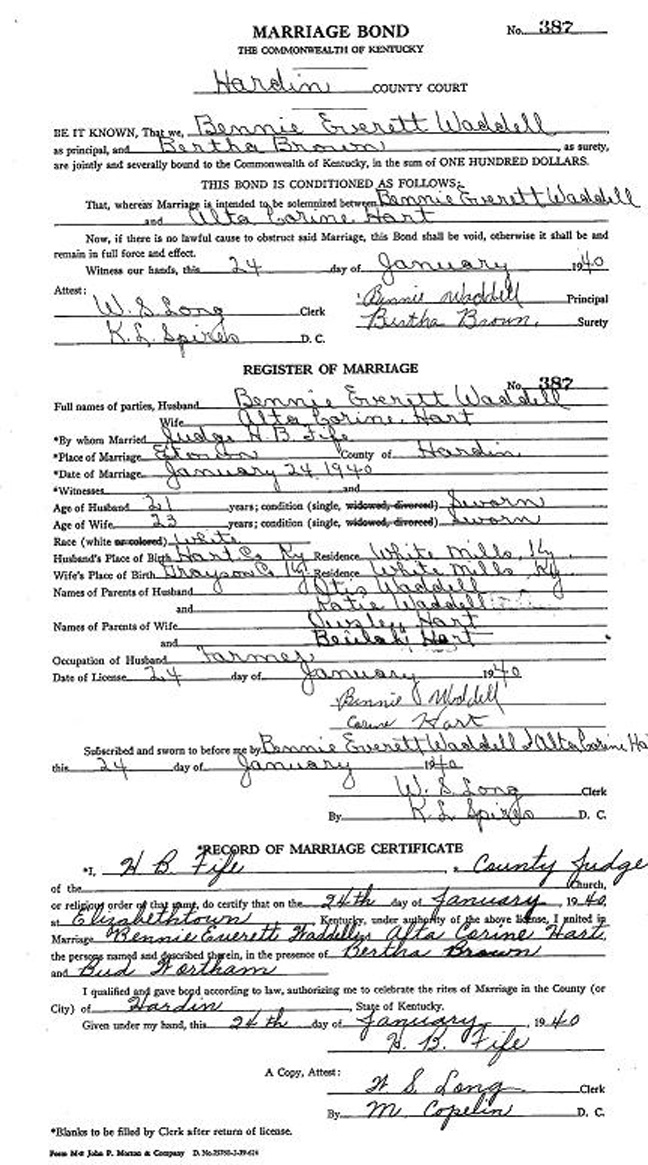 MARRIAGE BOND No. 387
THE COMMONWEALTH OF KENTUCKY
Hardin COUNTY COURT
BE IT KNOWN, That we, Bennie Everett Waddell
as principal, and Bertha Brown, as surety,
are jointly and severally bound to the Commonwealth of Kentucky, in the sum of ONE HUNDRED DOLLARS.
THIS BOND IS CONDITIONED AS FOLLOWS:
That, whereas Marriage is intended to be solemnized between Bennie Everett Waddell
and Alta Corine Hart
Now, if there is no lawful cause to obstruct said Marriage, this Bond shall be void, otherwise it shall be and
remain in full force and effect.
Witness our hands, this 24 day of January 1940
Attest: Bennie Waddell Principal
W. S. Long Clerk Bertha Brown. Surety
K. L. Spires D. C.
REGISTER OF MARRIAGE
No. 387
Full names of parties, Husband Bennie Everett Waddell
Wife Alta Corine Hart
*By whom Married Judge H. B. Fife
*Place of Marriage Etown County of Hardin
*Date of Marriage January 24, 1940
*Witnesses and
Age of Husband 21 years; condition (single, widowed, divorced) Sworn
Age of Wife 23 years; condition (single, widowed, divorced) Sworn
Race (white or colored) White
Husband's Place of Birth Hart Co Ky Residence White Mills, Ky.
Wife's Place of Birth Grayson Co Ky. Residence White Mills Ky
Names of Parents of Husband Otis Waddell
and Katie Waddell
Names of Parents of Wife Ousley Hart
and Beulah Hart
Occupation of Husband Farmer
Date of License 24 day of January 1940
Bennie Waddell
Corine Hart
Subscribed and sworn to before me by Bennie Everett Waddell & Alta Corine Ha
this 24 day of January 1940
W. S. Long Clerk
By K. L. Spires D. C.
*RECORD OF MARRIAGE CERTIFICATE
*I, H B. Fife, a County Judge
of the Church,
or religious order of that name, do certify that on the 24th day of January, 1940,
at Elizabethtown Kentucky, under authority of the above license, I united in
Marriage Bennie Everett Waddell & Alta Corine Hart,
the persons named and described therein, in the presence of Bertha Brown
and Bud Wortham
I qualified and gave bond according to law, authorizing me to celebrate the rites of Marriage in the County (or
City) of Hardin, State of Kentucky.
Given under my hand, this 24th day of January, 1940
H. B. Fife
A Copy, Attest: W S. Long Clerk
By M. Copelin D. C.
*Blanks to be filled by Clerk after return of license.
Form M-6 John P. Morton & Company